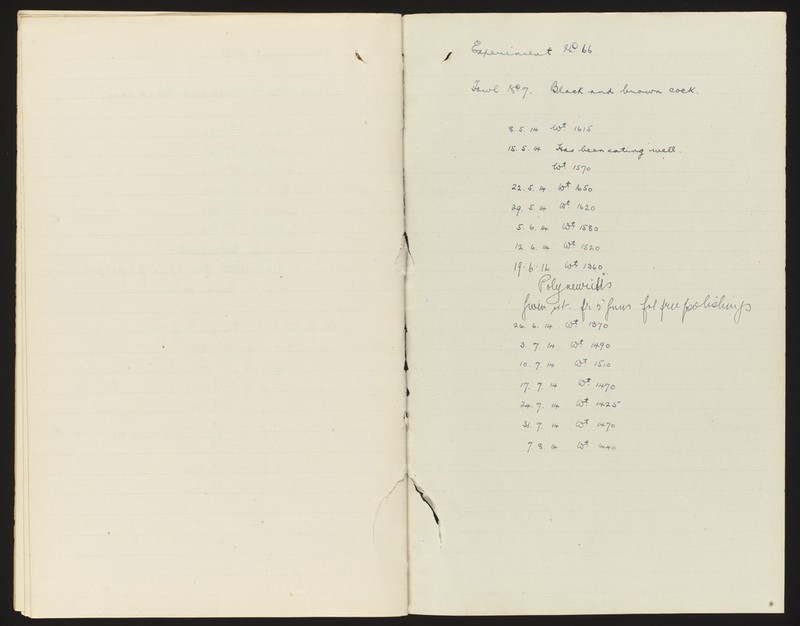 Experiment No 66
Fowl No 7. Black and brown cock.
8. 5. 14 Wt 1615
15. 5. 14 Has been eating well.
Wt 1570
22. 5. 14 Wt 1650
29. 5. 14 Wt 1620
5. 6. 14 Wt 1580
12. 6. 14 Wt 1520
19. 6. 14 Wt 1360
Polyneuritis
fr 5 grms fat free polishings
26. 6. 14 Wt 1370
3. 7. 14 Wt 1490
10. 7. 14 Wt 1510
17. 7. 14 Wt 1470
24. 7. 14 Wt 1425
31. 7. 14 Wt 1470
7. 8. 14 Wt 1440